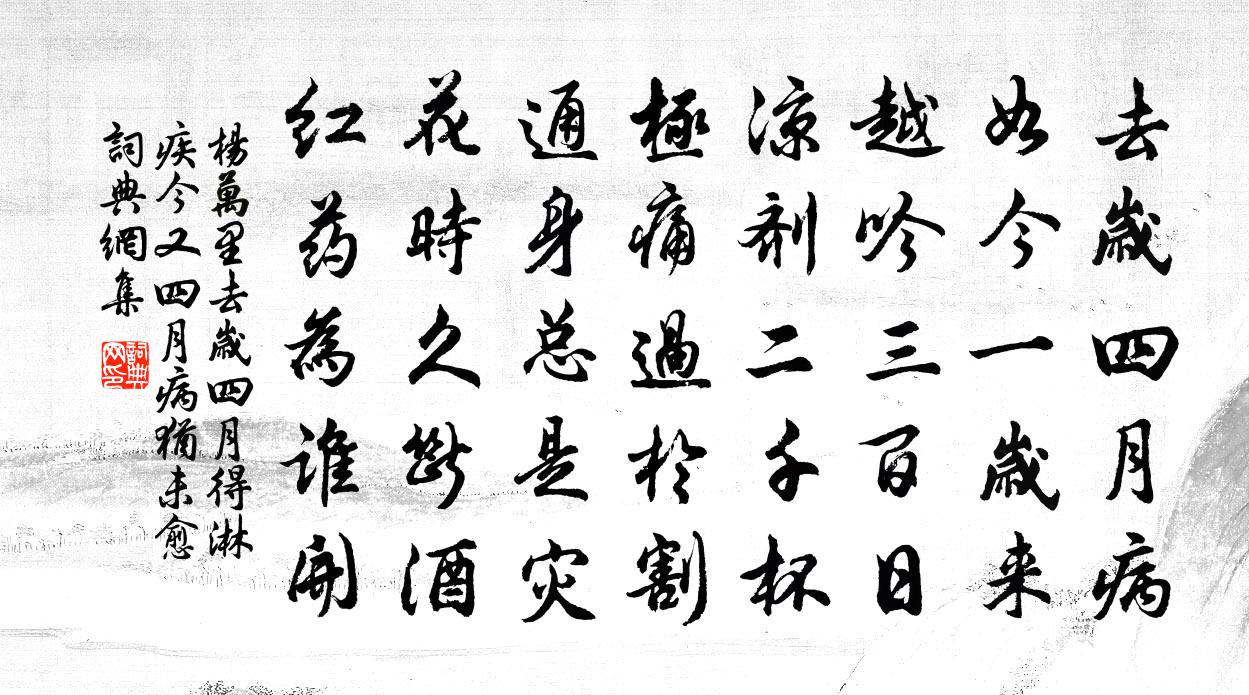 去歲四月病
如今一歲来
越吟三百日
凉剂二千杯
極痛過於割
通身总是灾
花時久断酒
红药為谁開
楊萬里去歲四月得淋
疾今又四月病猶未愈
詞典網集
詞典網印